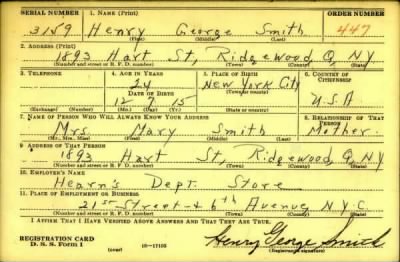 SERIAL NUMBER 1. NAME (Print) ORDER NUMBER
3159 Henry George Smith 447
(First) (Middle) (Last)
2. ADDRESS (Print)
1893 Hart St, Ridgewood Q, NY
(Number and street or R. F. D. number) (Town) (County) (State)
3. TELEPHONE 4. AGE IN YEARS 5. PLACE OF BIRTH 6. COUNTRY OF CITIZENSHIP
24 New York City
DATE OF BIRTH (Town or county)
12 7 15 U.S.A
(Exchange) (Number) (Mo.) (Day) (Yr.) (State or country)
7. NAME OF PERSON WHO WILL ALWAYS KNOW YOUR ADDRESS 8. RELATIONSHIP OF THAT PERSON
Mrs. Mary Smith Mother.
(Mr., Mrs., Miss) (First) (Middle) (Last)
9. ADDRESS OF THAT PERSON
1893 Hart St, Ridgewood, Q, NY
(Number and street or R. F. D. number) (Town) (County) (State)
10. EMPLOYER'S NAME
Hearn's Dept. Store
11. PLACE OF EMPLOYMENT OR BUSINESS
21st Street & 6th Avenue, N.Y.C
(Number and street or R. F. D. number) (Town) (County) (State)
I AFFIRM THAT I HAVE VERIFIED ABOVE ANSWERS AND THAT THEY ARE TRUE.
REGISTRATION CARD
D. S. S. Form 1 (over) 16—17105 Henry George Smith
(Registrant's signature)